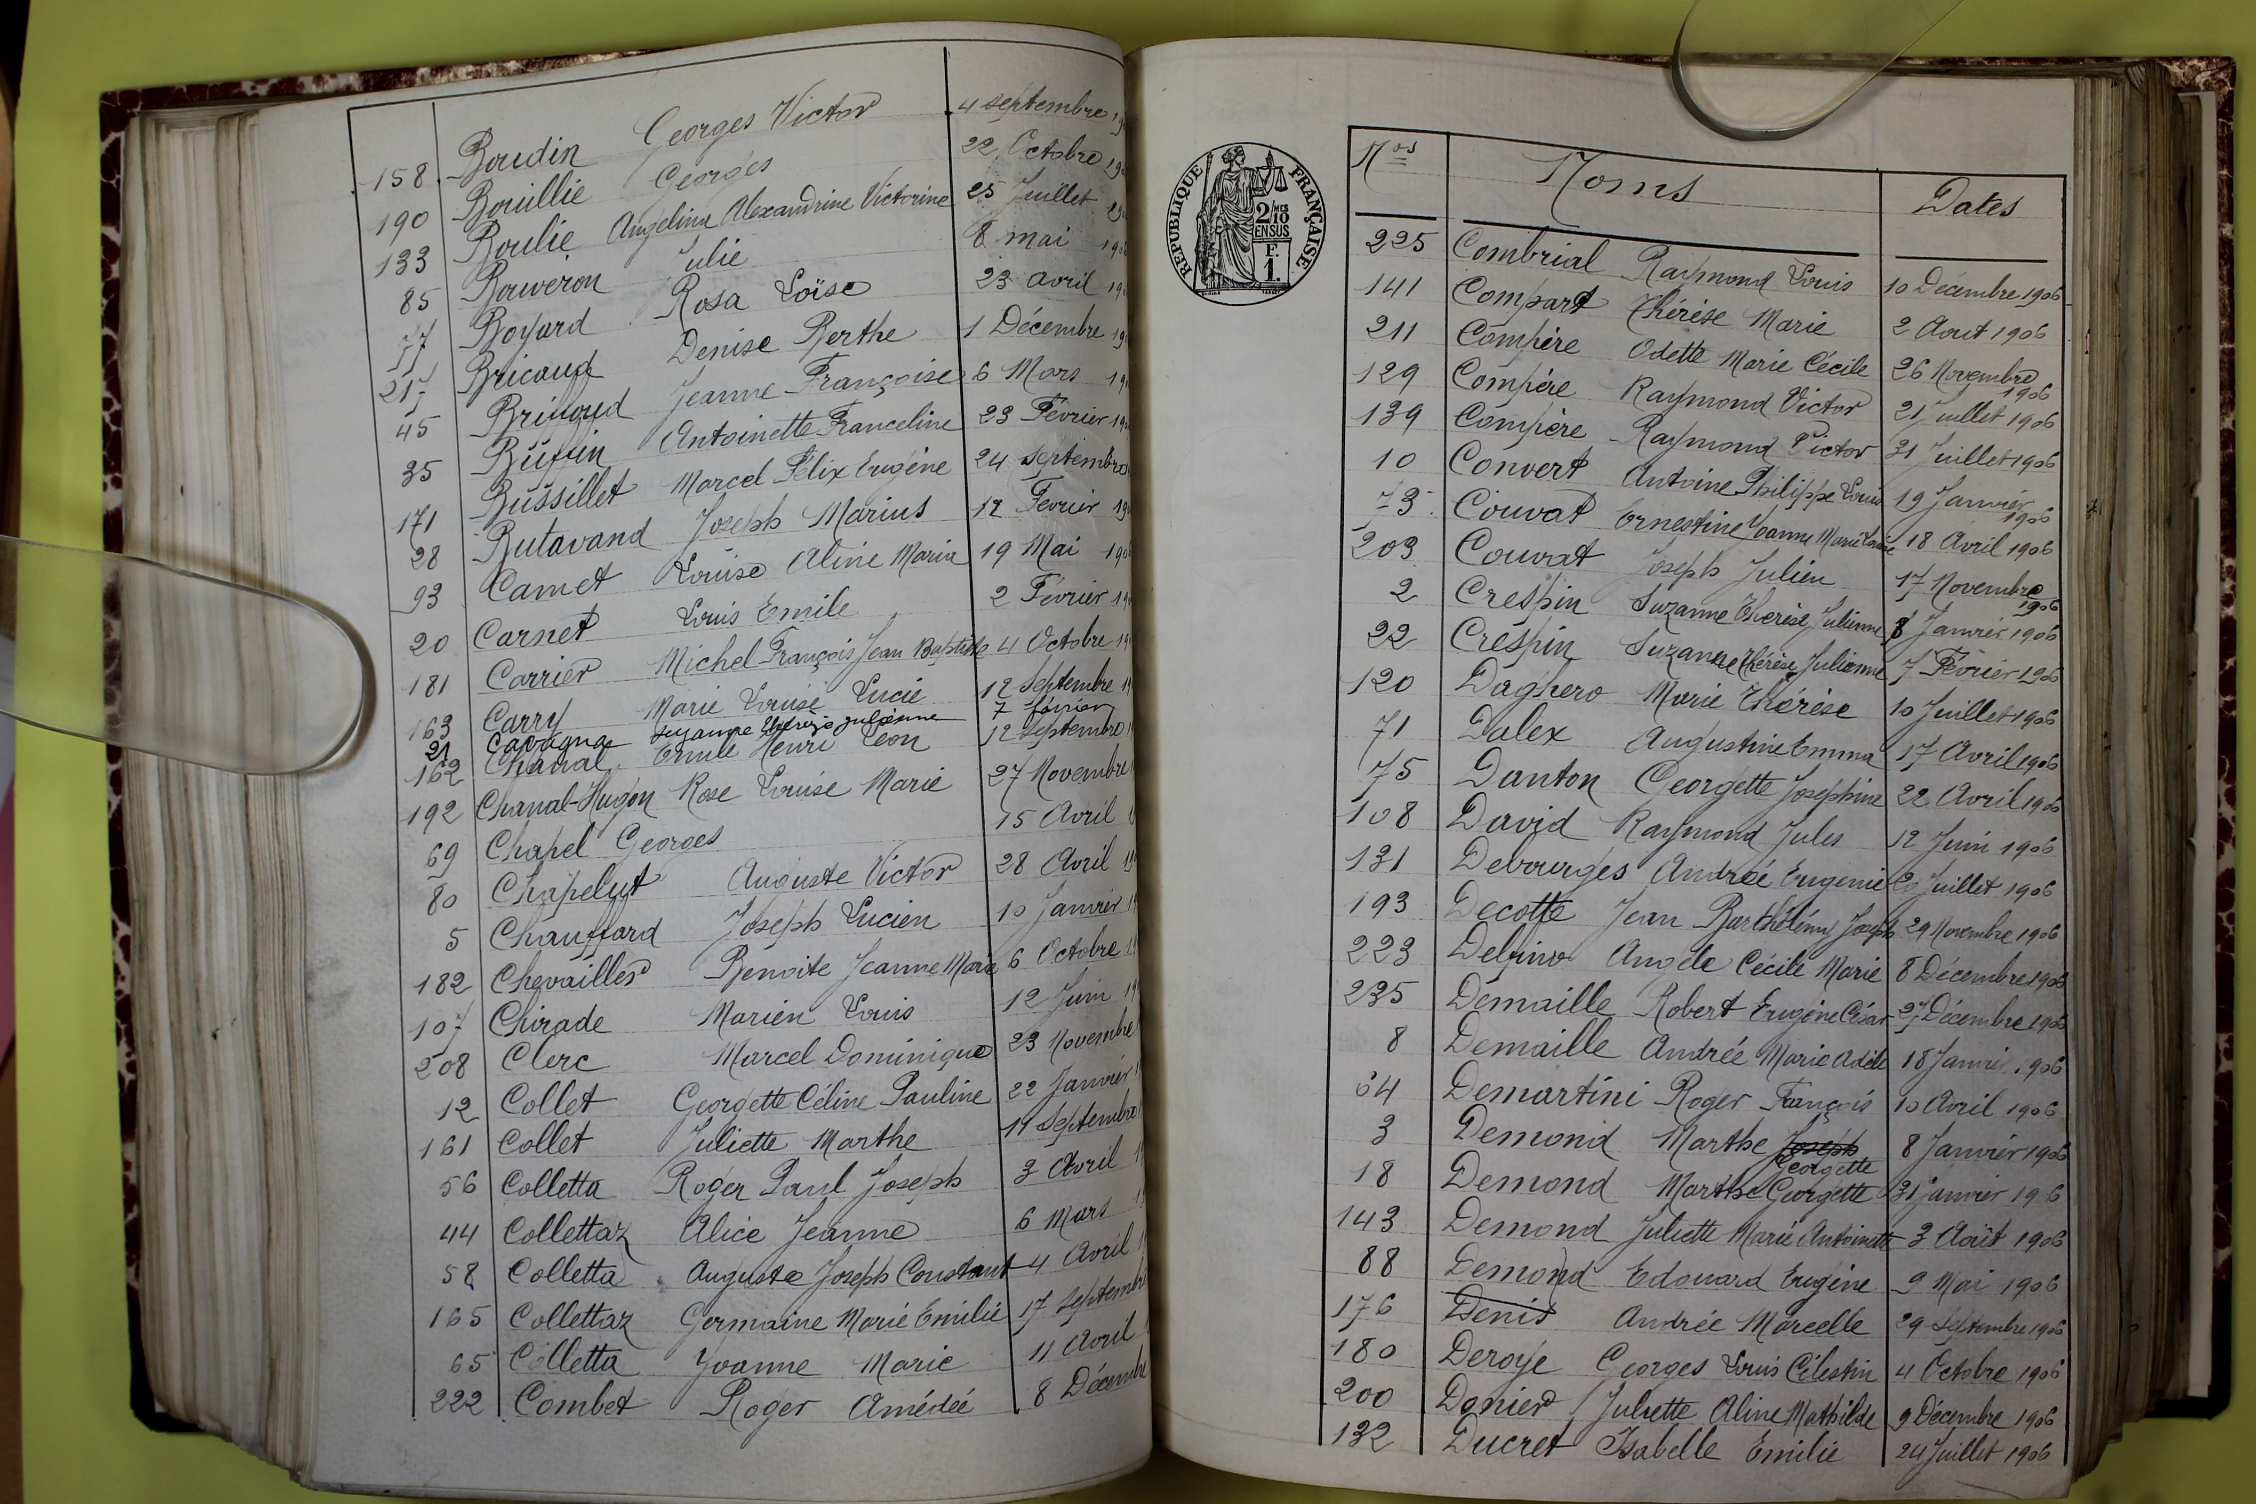 158 Boudin Georges Victor 4 septembre
190 Bouillie Georges 22 Octobre
133 Boulie Angelina Alexandrine Victorine 25 Juillet
85 Bouveron Julie 8 mai
77 Boyard Rosa Loïse 23 avril
217 Bricaud Denise Berthe 1 Décembre
45 Brilloud Jeanne Françoise 6 Mars
35 Buffin Antoinette Franceline 23 Février
171 Bussillet Marcel Félix Eugène 24 septembre
28 Butavand Joseph Marius 12 Février
93 Camet Louise Aline Maria 19 Mai
20 Carnet Louis Emile 2 Février
181 Carrier Michel François Jean Baptiste 4 Octobre
163 Carry Marie Louise Lucie 12 Septembre
21 Cavagna Suzanne Thérèze Julienne 7 février
162 Chanal Emile Henri Léon 12 septembre
192 Chanal-Hugon Rose Louise Marie 27 Novembre
69 Chapel Georges 15 Avril
80 Chapelut Auguste Victor 28 Avril
5 Chauffard Joseph Lucien 10 Janvier
182 Chevailler Benoite Jeanne Marie 6 Octobre
107 Chirade Marien Louis 12 Juin
208 Clerc Marcel Dominique 23 Novembre
12 Collet Georgette Céline Pauline 22 Janvier
161 Collet Juliette Marthe 11 Septembre
56 Colletta Roger Paul Joseph 3 Avril
44 Collettaz Alice Jeanne 6 Mars
58 Colletta Auguste Joseph Constant 4 Avril
165 Collettaz Germaine Marie Emilie 17 Septembre
65 Colletta Yoanne Marie 11 Avril
222 Combet Roger Amédée 8 Décembre
RÉPUBLIQUE FRANÇAISE
2/10 MES
EN SUS
F.
1.
Nos Noms Dates
225 Combrial Raymond Louis 10 Décembre 1906
141 Compart Thérèse Marie 2 Aout 1906
211 Compère Odette Marie Cécile 26 Novembre 1906
129 Compère Raymond Victor 21 Juillet 1906
139 Compère Raymond Victor 31 Juillet 1906
10 Convert Antoine Philippe Louis 19 Janvier 1906
73 Couvat Ernestine Yoanne Marie Louise 18 Avril 1906
203 Couvat Joseph Julien 17 Novembre 1906
2 Crespin Suzanne Thérèse Julienne 8 Janvier 1906
22 Créspin Suzanne Thérèse Julienne 7 Février 1906
120 Daghero Marie Thérèse 10 Juillet 1906
71 Dalex Augustine Emma 17 Avril 1906
75 Danton Georgette Joséphine 22 Avril 1906
108 David Raymond Jules 12 Juin 1906
131 Debourges Andrée Eugenie Juillet 1906
193 Decotte Jean Barthélémy Joseph 29 Novembre 1906
223 Delfino Angèle Cécile Marie 8 Décembre 1906
235 Demaille Robert Eugène César 27 Décembre 1906
8 Demaille Andrée Marie Adèle 18 Janvier 1906
64 Demartini Roger François 10 Avril 1906
3 Demond Marthe Joseph Georgette 8 Janvier 1906
18 Demond Marthe Georgette 31 Janvier 1906
143 Demond Juliette Marie Antoinette 3 Août 1906
88 Demond Edouard Eugène 9 Mai 1906
176 Denis Andrée Marcelle 29 Septembre 1906
180 Deroje Georges Louis Célestin 4 Octobre 1906
200 Donier Juliette Aline Mathilde 9 Décembre 1906
132 Ducret Isabelle Emilie 24 Juillet 1906